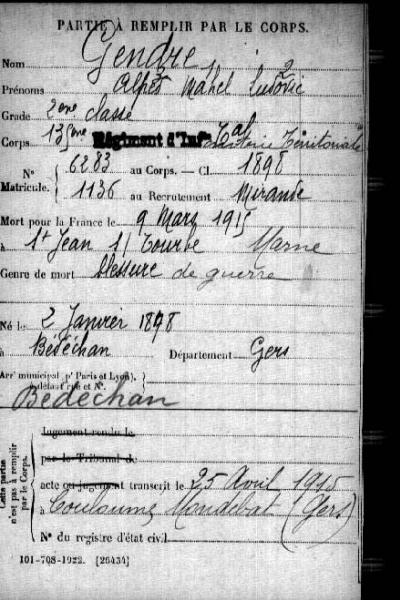 PARTIE À REMPLIR PAR LE CORPS.
Nom Gendre
Prénoms Alfred Mahel Ludovic 2
Grade 2ème classe
Corps 135ème Régiment d'Inf Territoriale
N° Matricule. { 6283 au Corps. — Cl. 1898
1136 au Recrutement Mirande
Mort pour la France le 9 Mars 1915
à St Jean s/ Tourbe Marne
Genre de mort blessure de guerre
Né le 2 Janvier 1878
à Bédéchan Département Gers
Arrt municipal (pr Paris et Lyon), à défaut rue et N°. }
Bédéchan
Cette partie n'est pas à remplir par le Corps.
Jugement rendu le
par le Tribunal de
acte ou jugement transcrit le 25 Avril 1915
à Couloumé Mondebat (Gers)
N° du registre d'état civil
101-708-1922. [26434]